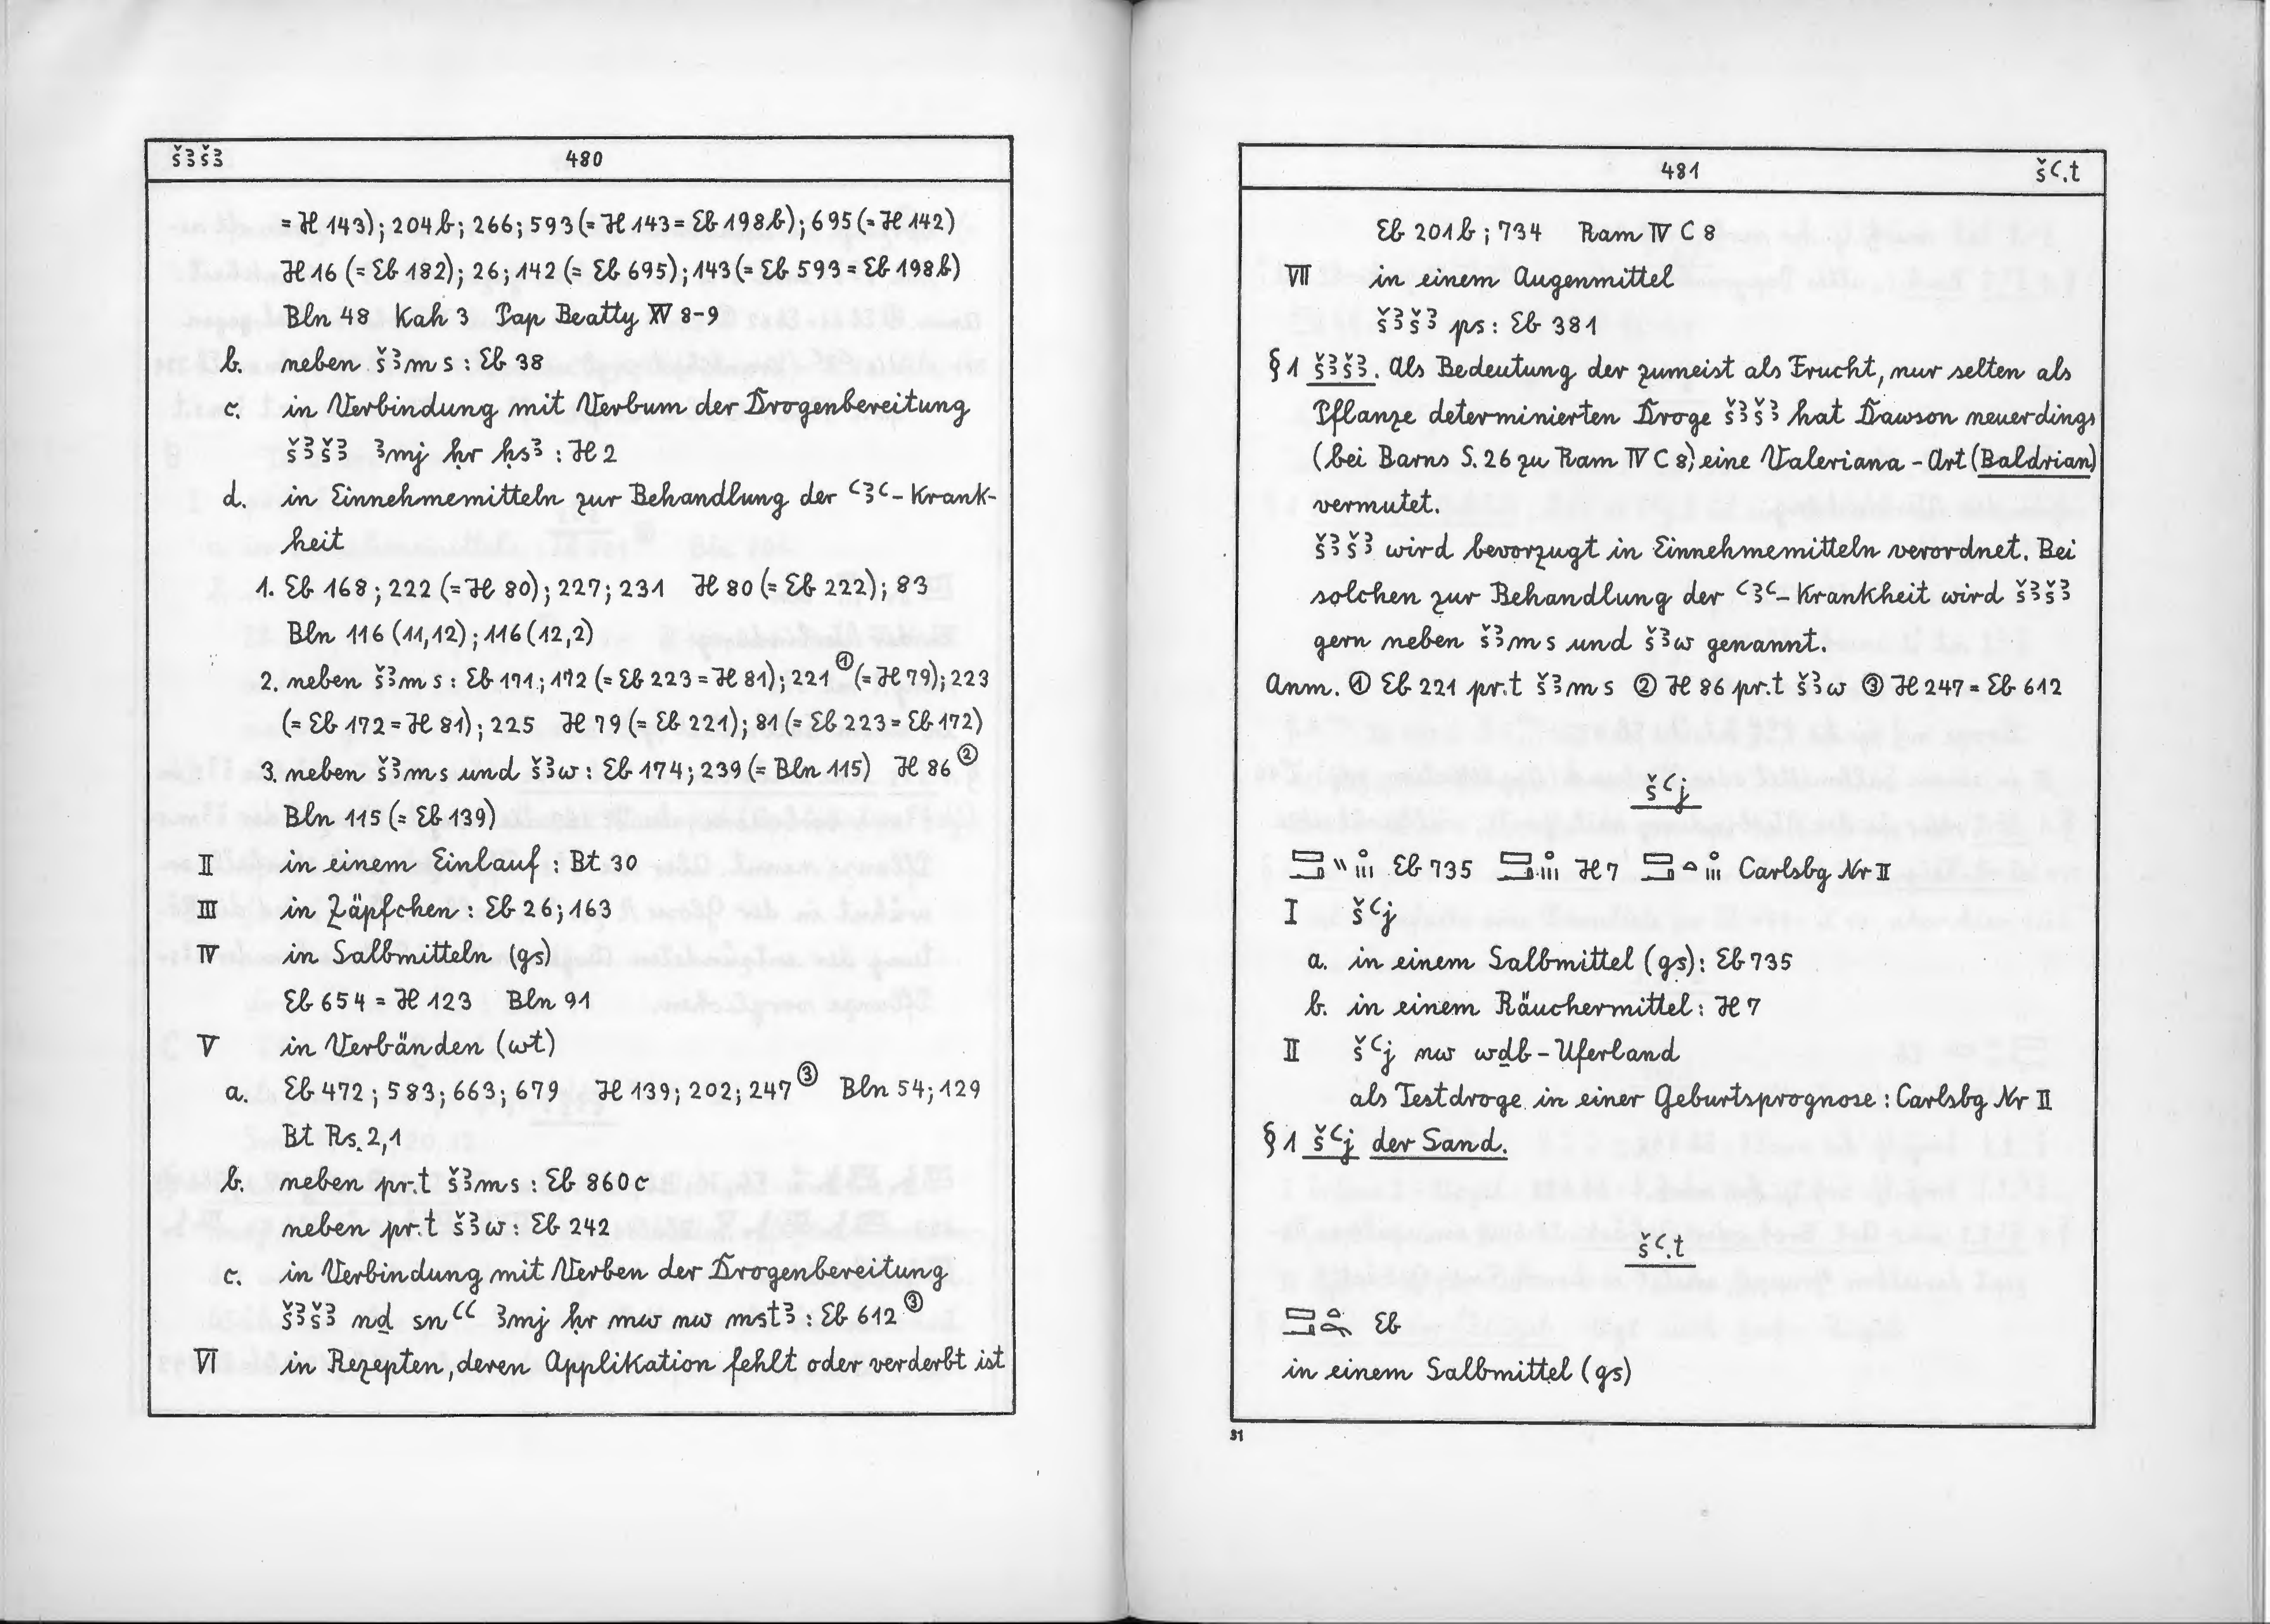 šꜣšꜣ 480
= H 143); 204b; 266; 593 (= H 143 = Eb 198b); 695 (= H 142)
H 16 (= Eb 182); 26; 142 (= Eb 695); 143 (= Eb 593 = Eb 198b)
Bln 48 Kah 3 Pap Beatty XV 8-9
b. neben šꜣms : Eb 38
c. in Verbindung mit Verbum der Drogenbereitung
šꜣšꜣ ꜣmj ḥr ḥsꜣ : H 2
d. in Einnehmemitteln zur Behandlung der ꜥꜣꜥ-Krank-
heit
1. Eb 168; 222 (= H 80); 227; 231 H 80 (= Eb 222); 83
Bln 116 (11,12); 116 (12,2)
2. neben šꜣms : Eb 171; 172 (= Eb 223 = H 81); 221 ① (= H 79); 223
(= Eb 172 = H 81); 225 H 79 (= Eb 221); 81 (= Eb 223 = Eb 172)
3. neben šꜣms und šꜣw : Eb 174; 239 (= Bln 115) H 86 ②
Bln 115 (= Eb 139)
II in einem Einlauf : Bt 30
III in Zäpfchen : Eb 26; 163
IV in Salbmitteln (gs)
Eb 654 = H 123 Bln 91
V in Verbänden (wt)
a. Eb 472; 583; 663; 679 H 139; 202; 247 ③ Bln 54; 129
Bt Rs. 2,1
b. neben pr.t šꜣms : Eb 860c
neben pr.t šꜣw : Eb 242
c. in Verbindung mit Verben der Drogenbereitung
šꜣšꜣ nḏ snꜥꜥ ꜣmj ḥr mw nw mstꜣ : Eb 612 ③
VI in Rezepten, deren Applikation fehlt oder verderbt ist
481 šꜥ.t
Eb 201b; 734 Ram IV C 8
VII in einem Augenmittel
šꜣšꜣ ps : Eb 381
§ 1 šꜣšꜣ. Als Bedeutung der zumeist als Frucht, nur selten als
Pflanze determinierten Droge šꜣšꜣ hat Dawson neuerdings
(bei Barns S. 26 zu Ram IV C 8) eine Valeriana-Art (Baldrian)
vermutet.
šꜣšꜣ wird bevorzugt in Einnehmemitteln verordnet. Bei
solchen zur Behandlung der ꜥꜣꜥ-Krankheit wird šꜣšꜣ
gern neben šꜣms und šꜣw genannt.
Anm. ① Eb 221 pr.t šꜣms ② H 86 pr.t šꜣw ③ H 247 = Eb 612
šꜥj
Eb 735 H 7 Carlsbg Nr II
I šꜥj
a. in einem Salbmittel (gs) : Eb 735
b. in einem Räuchermittel : H 7
II šꜥj nw wḏb-Uferland
als Testdroge in einer Geburtsprognose : Carlsbg Nr II
§ 1 šꜥj der Sand.
šꜥ.t
Eb
in einem Salbmittel (gs)
31